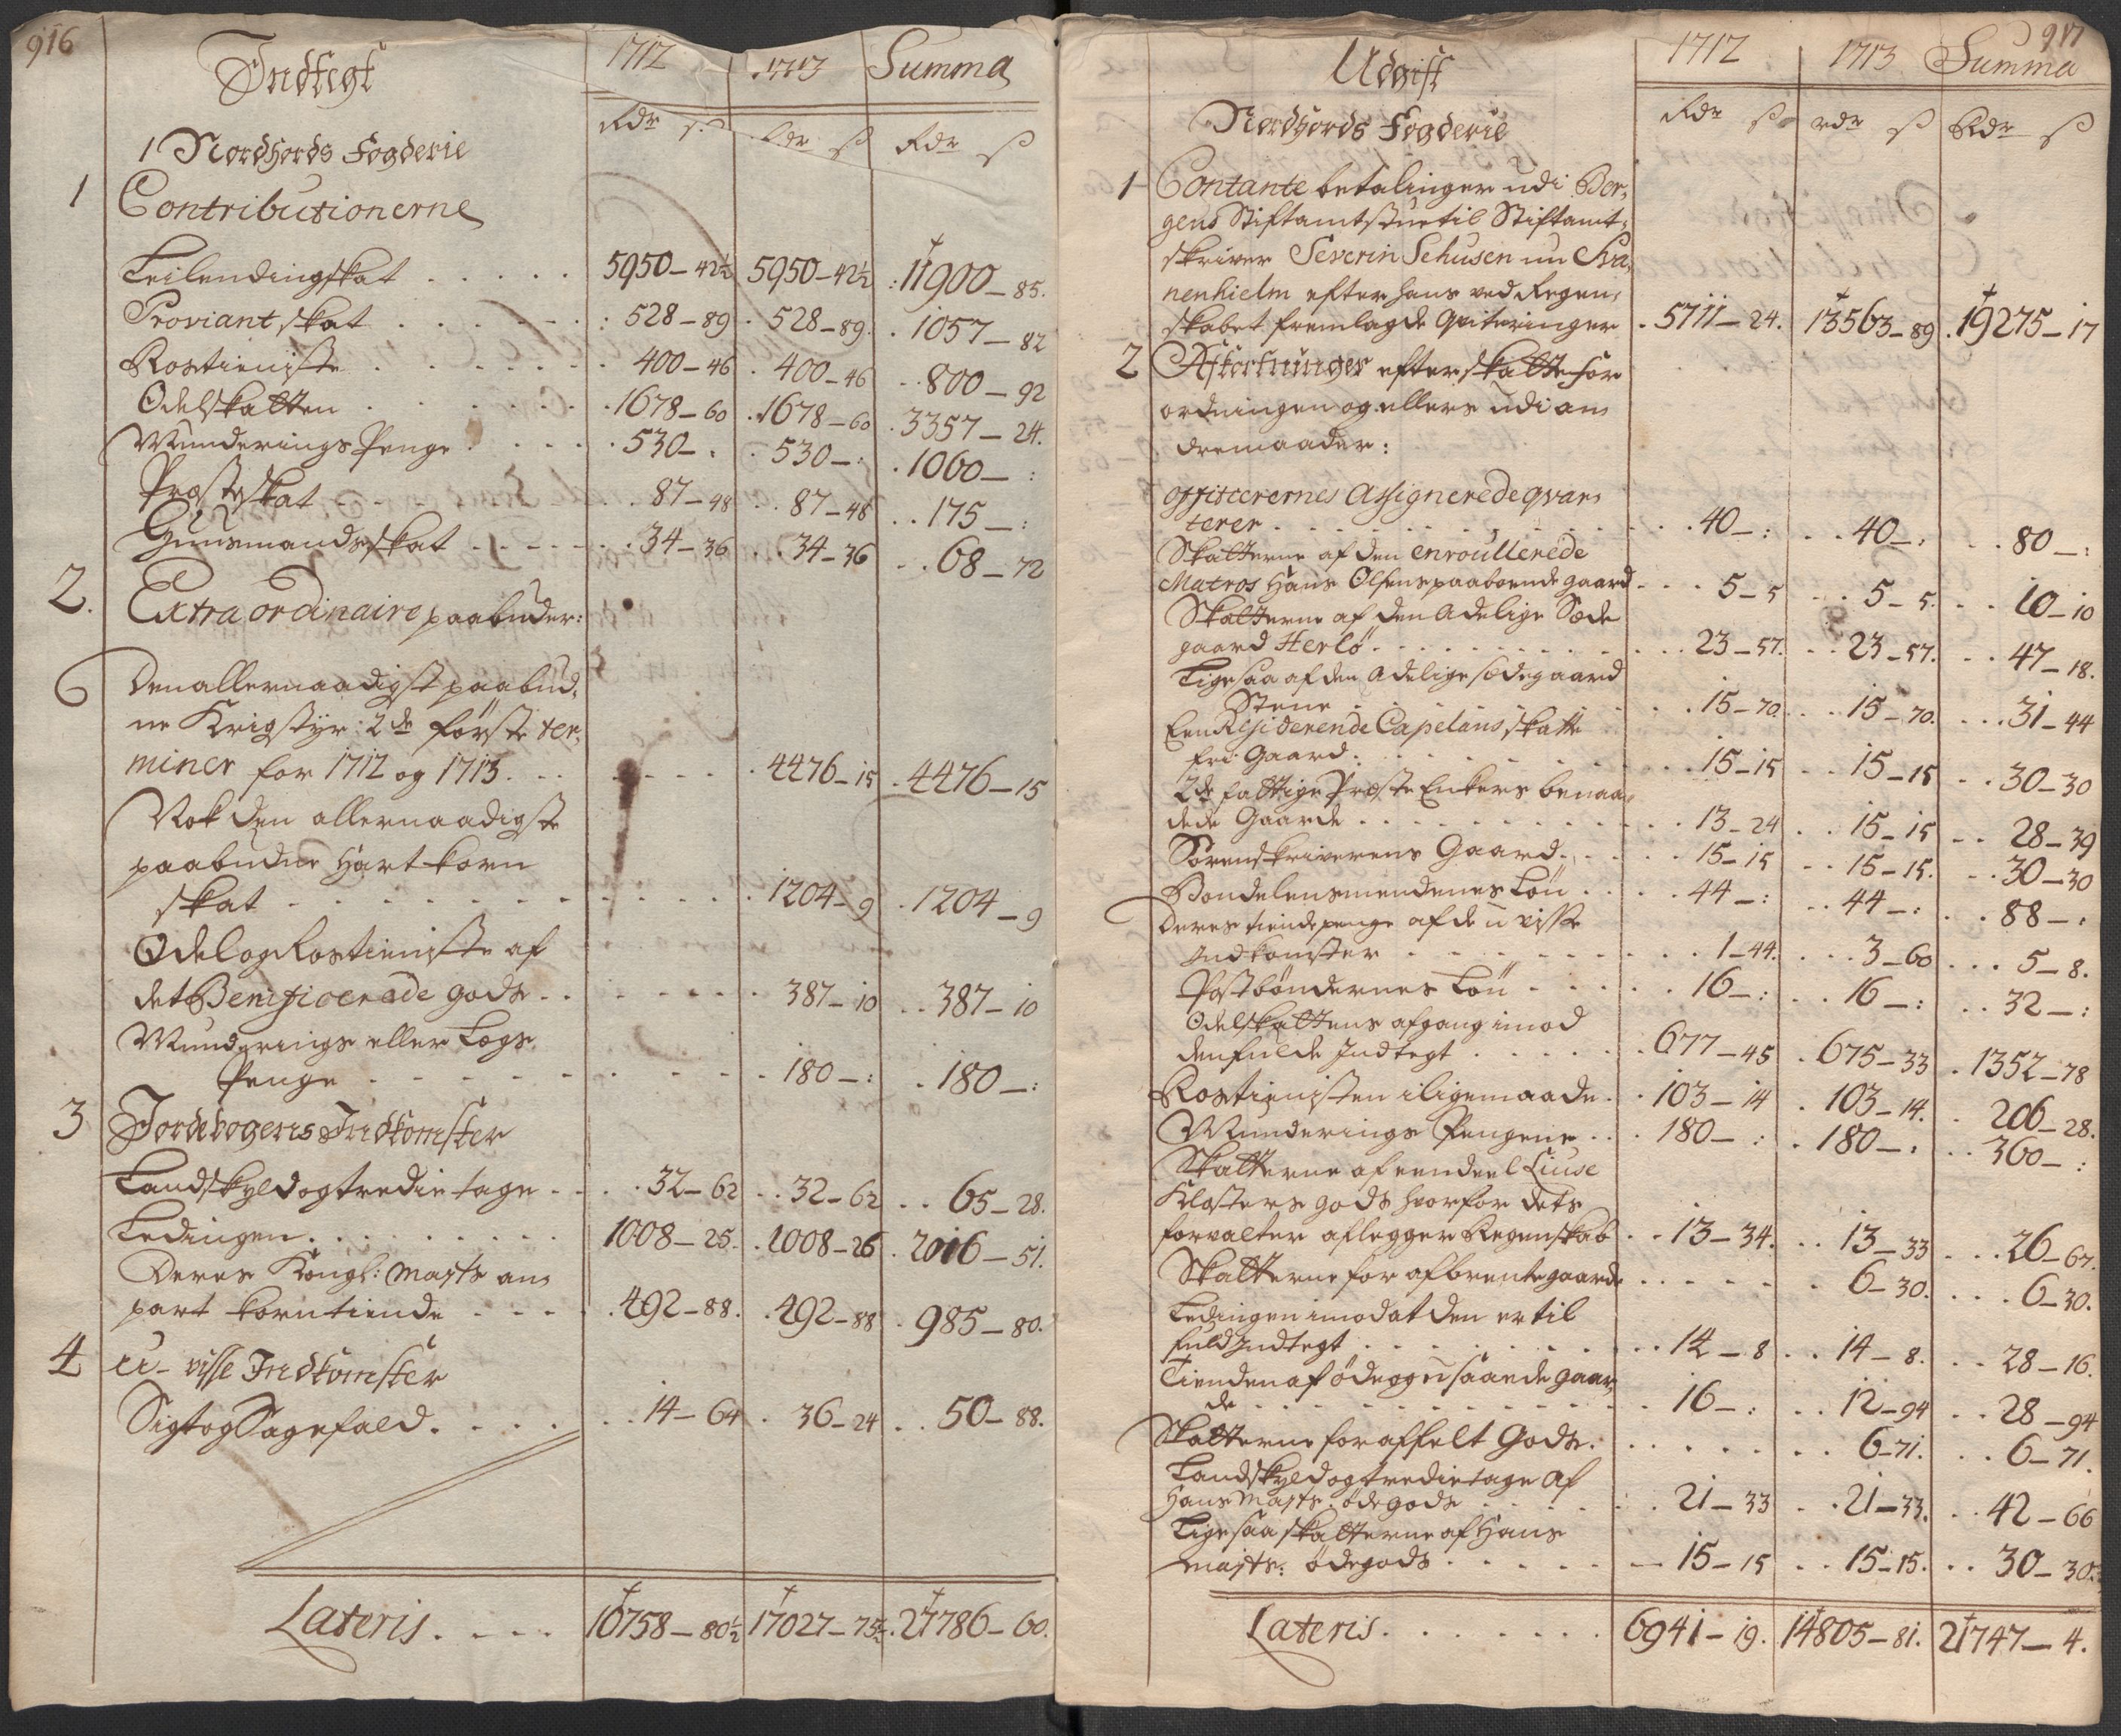 916
Indtegt 1712 1713 Summa
Rdr ß Rdr ß Rdr ß
1 Nordhords Fogderie
1 Contributionerne
Leilendingskat . . . . . 5950–42½ 5950–42½ 11900–85.
Proviant skat . . . . . 528–89 528–89 1057–82
Rostieniste . . . . . 400–46 400–46 800–92
Odelskatten . . . . . 1678–60 1678–60 3357–24.
Munderings Penge . . . . 530–. 530–: 1060–:
Præsteskat . . . . 87–48 87–48 175–:
Giunsmandsskat . . . . 34–36 34–36 68–72
2. Extraordinaire paabuder:
6 Den allernaadigst paabud,
ne Krigstyr: 2de første ter,
miner for 1712 og 1713. . . . 4476–15 4476–15
Nok den allernaadigste
paabudne Hartkorn
skat . . . . . 1204–9 1204–9
Odel og Rostieniste af
det Benificerede gods . . 387–10 387–10
Munderings eller Legs
Penge . . . . . 180–: 180–:
3 Jordebogens Indkomster
Landskyld og tredie tage . . . 32–62 32–62 65–28.
Ledingen . . . . . 1008–25. 1008–26 2016–51.
Deres Kongl: Majts an,
part korntiende . . . 492–88. 492–88 985–80.
4 U-visse Indkomster
Sigt og Sagefald . . . . 14–64 36–24 50–88.
Lateris . . . . 10758–80½ 17027–75½ 27786–60.
917
Udgift 1712 1713 Summa
Rdr ß rdr ß Rdr ß
Nordhords Fogderie
1 Contante betalinger udi Ber,
gens Stiftamtstue til Stiftamt,
skriver Severin Sehusen nu Sva,
nenhielm efter hans ved Regen,
skabet fremlagde Qviteringer . 5711–24. 13563–89 19275–17
2 Afkortninger efter skatte for
ordningen og ellers udi an,
dre maader:
officerernes Assignerede qvar,
terer . . . . . 40–: 40–. 80–:
Skatterne af den enroullerede
Matros Hans Olsens paaboende gaard . . 5–5 5–5. 10–10
Skatterne af den Adelige Sæde
gaard Herlö . . . . . 23–57. 23–57. 47–18.
Ligesaa af den Adelige sædegaard
Stene . . . . . 15–70 15–70. 31–44
Een Residerende Capelans skatte
fri Gaard . . . . . 15–15 15–15 30–30
2de fattige Præste Enkers benaa,
dede Gaarde . . . . . 13–24 15–15 28–39
Sorenskriverens Gaard . . . . 15–15 15–15. 30–30
Bondelensmendenes Løn . . . 44–: 44–: 88–.
Deres tiendepenge af de uvisse
Indkomster . . . . . 1–44. 3–60 5–8.
Postbøndernes Løn . . . . 16–: 16–: 32–:
Odelskattens afgang imod
den fulde Indtegt . . . . . 677–45 675–33 1352–78
Rostienisten iligemaade . 103–14 103–14. 206–28.
Munderings Pengene . . . 180–: 180–. 360–:
Skatterne af eendeel Liuse
Klosters gods hvorfor dets
forvalter aflegger Regenskab . . 13–34. 13–33 26–67.
Skatterne for afbrente gaarde . . . . 6–30. 6–30.
Ledingen imod at den er til
fuld Indtegt . . . . . 14–8 14–8. 28–16.
Tienden af øde og usaaede gaar,
de . . . . . 16–: 12–94 28–94
Skatterne for affelt Gods . . . . . 6–71. 6–71.
Landskyld og tredietage af
Hans Majts. øde gods . . . . . 21–33 21–33. 42–66
Ligesaa skatterne af Hans
Majts: ødegods . . . . . 15–15 15–15. 30–30.
Lateris . . . . . 6941–19. 14805–81. 21747–4.